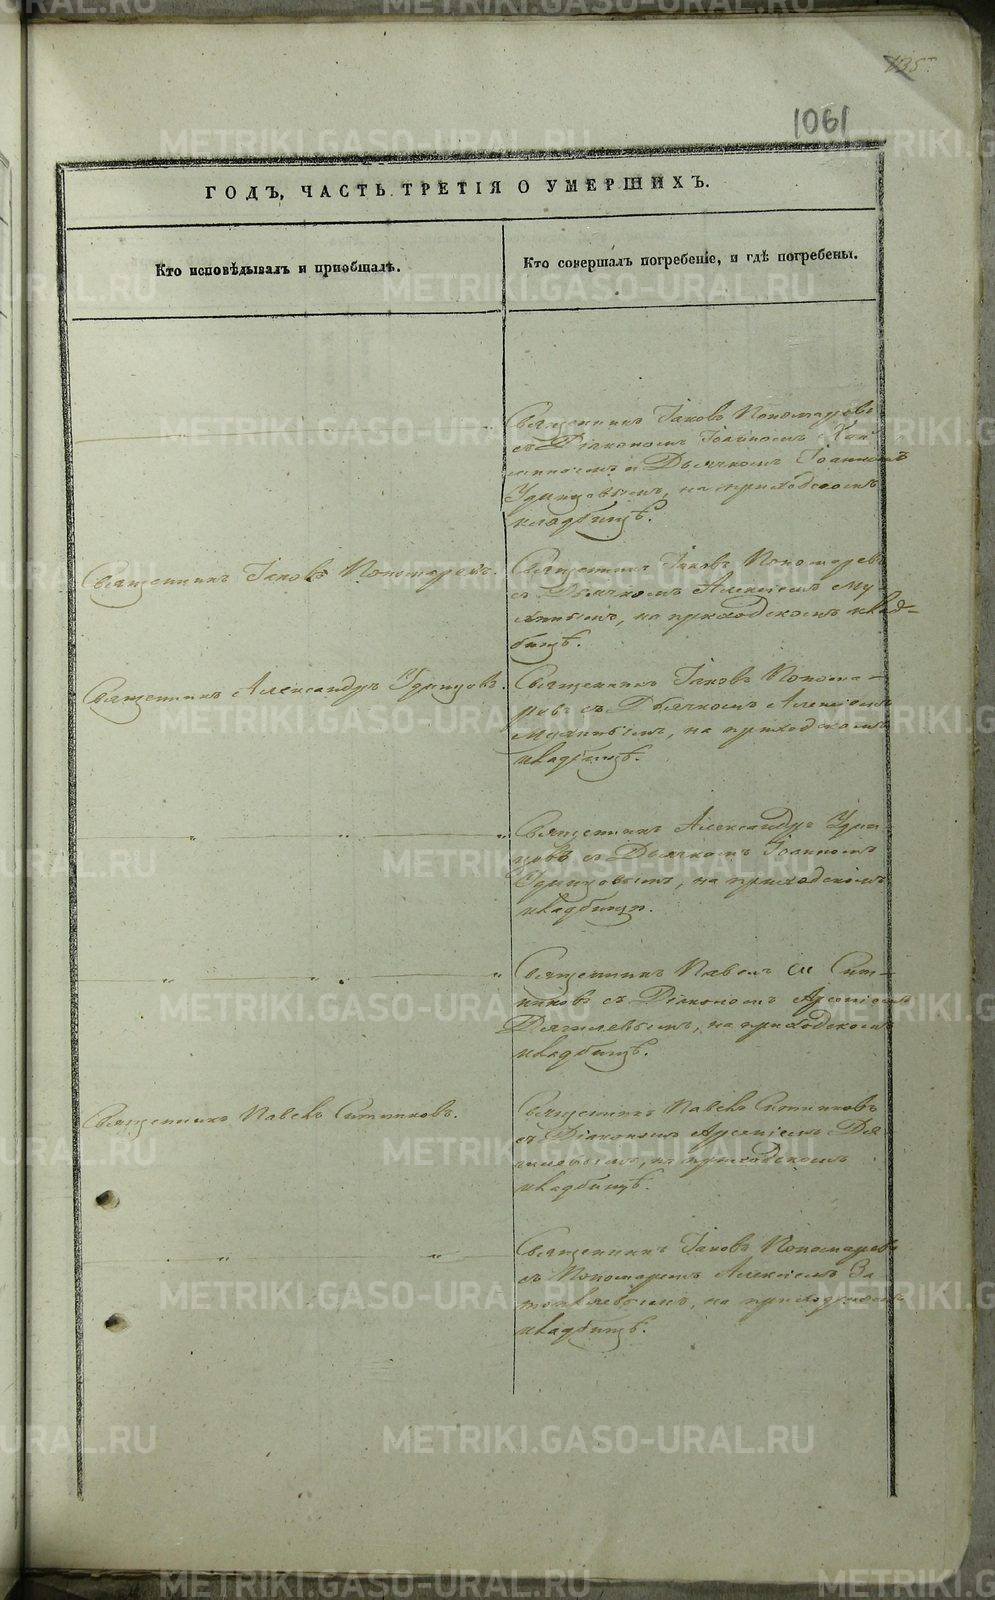 1061
ГОДЪ, ЧАСТЬ ТРЕТІЯ О УМЕРШИХЪ.
Кто исповѣдывалъ и пріобщалъ.
Кто совершалъ погребеніе, и гдѣ погребены.
Священникъ Іаковъ Пономаревъ
съ Діакономъ Іоанномъ
и Дьячкомъ Іоанномъ
Удинцовымъ, на приходскомъ
кладбищѣ.
Священникъ Іаковъ Пономаревъ.
Священникъ Іаковъ Пономаревъ
съ Дьячкомъ Алексіемъ Му-
хинымъ, на приходскомъ клад-
бищѣ.
Священникъ Александръ Удинцовъ.
Священникъ Іаковъ Понома-
ревъ съ Дьячкомъ Алексіемъ
Мухинымъ, на приходскомъ
кладбищѣ.
Священникъ Александръ Удин-
цовъ съ Дьячкомъ Іоанномъ
Удинцовымъ, на приходскомъ
кладбищѣ.
Священникъ Павелъ Сит-
никовъ съ Діакономъ Арсеніемъ
Дягилевымъ, на приходскомъ
кладбищѣ.
Священникъ Павелъ Ситниковъ.
Священникъ Павелъ Ситниковъ
съ Діакономъ Арсеніемъ Дя-
гилевымъ, на приходскомъ
кладбищѣ.
Священникъ Іаковъ Пономаревъ
съ Пономаремъ Алексіемъ За-
топляевымъ, на приходскомъ
кладбищѣ.
METRIKI.GASO-URAL.RU